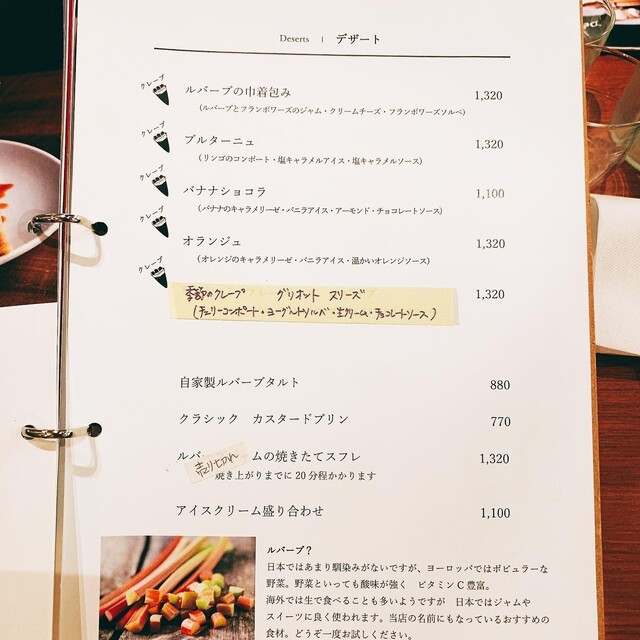 Desserts | デザート
クレープ
ルバーブの巾着包み 1,320
（ルバーブとフランボワーズのジャム・クリームチーズ・フランボワーズソルベ）
クレープ
ブルターニュ 1,320
（リンゴのコンポート・塩キャラメルアイス・塩キャラメルソース）
クレープ
バナナショコラ 1,100
（バナナのキャラメリーゼ・バニラアイス・アーモンド・チョコレートソース）
クレープ
オランジュ 1,320
（オレンジのキャラメリーゼ・バニラアイス・温かいオレンジソース）
クレープ
季節のクレープ グリオット スリーズ 1,320
（チェリーコンポート・ヨーグルトソルベ・生クリーム・チョコレートソース）
自家製ルバーブタルト 880
クラシック カスタードプリン 770
ルバ ムの焼きたてスフレ 1,320
売り切れ
焼き上がりまでに 20 分程かかります
アイスクリーム盛り合わせ 1,100
ルバーブ？
日本ではあまり馴染みがないですが、ヨーロッパではポピュラーな
野菜。野菜といっても酸味が強く ビタミン C 豊富。
海外では生で食べることも多いようですが 日本ではジャムや
スイーツに良く使われます。当店の名前にもなっているおすすめの
食材。どうぞ一度お試しください。